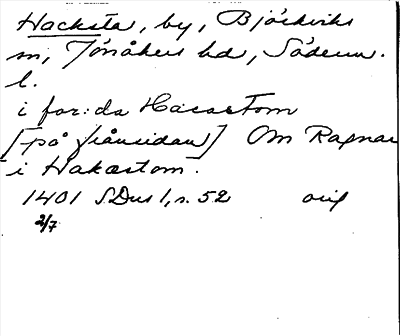 Hacksta, by, Björkviks
sn, Jönåkers hd, Söderm.
l.
i for:da Hacastom
[på frånsidan] Om Ragnar
i Hakastom.
1401 SDns 1, s. 52 orig
2/7